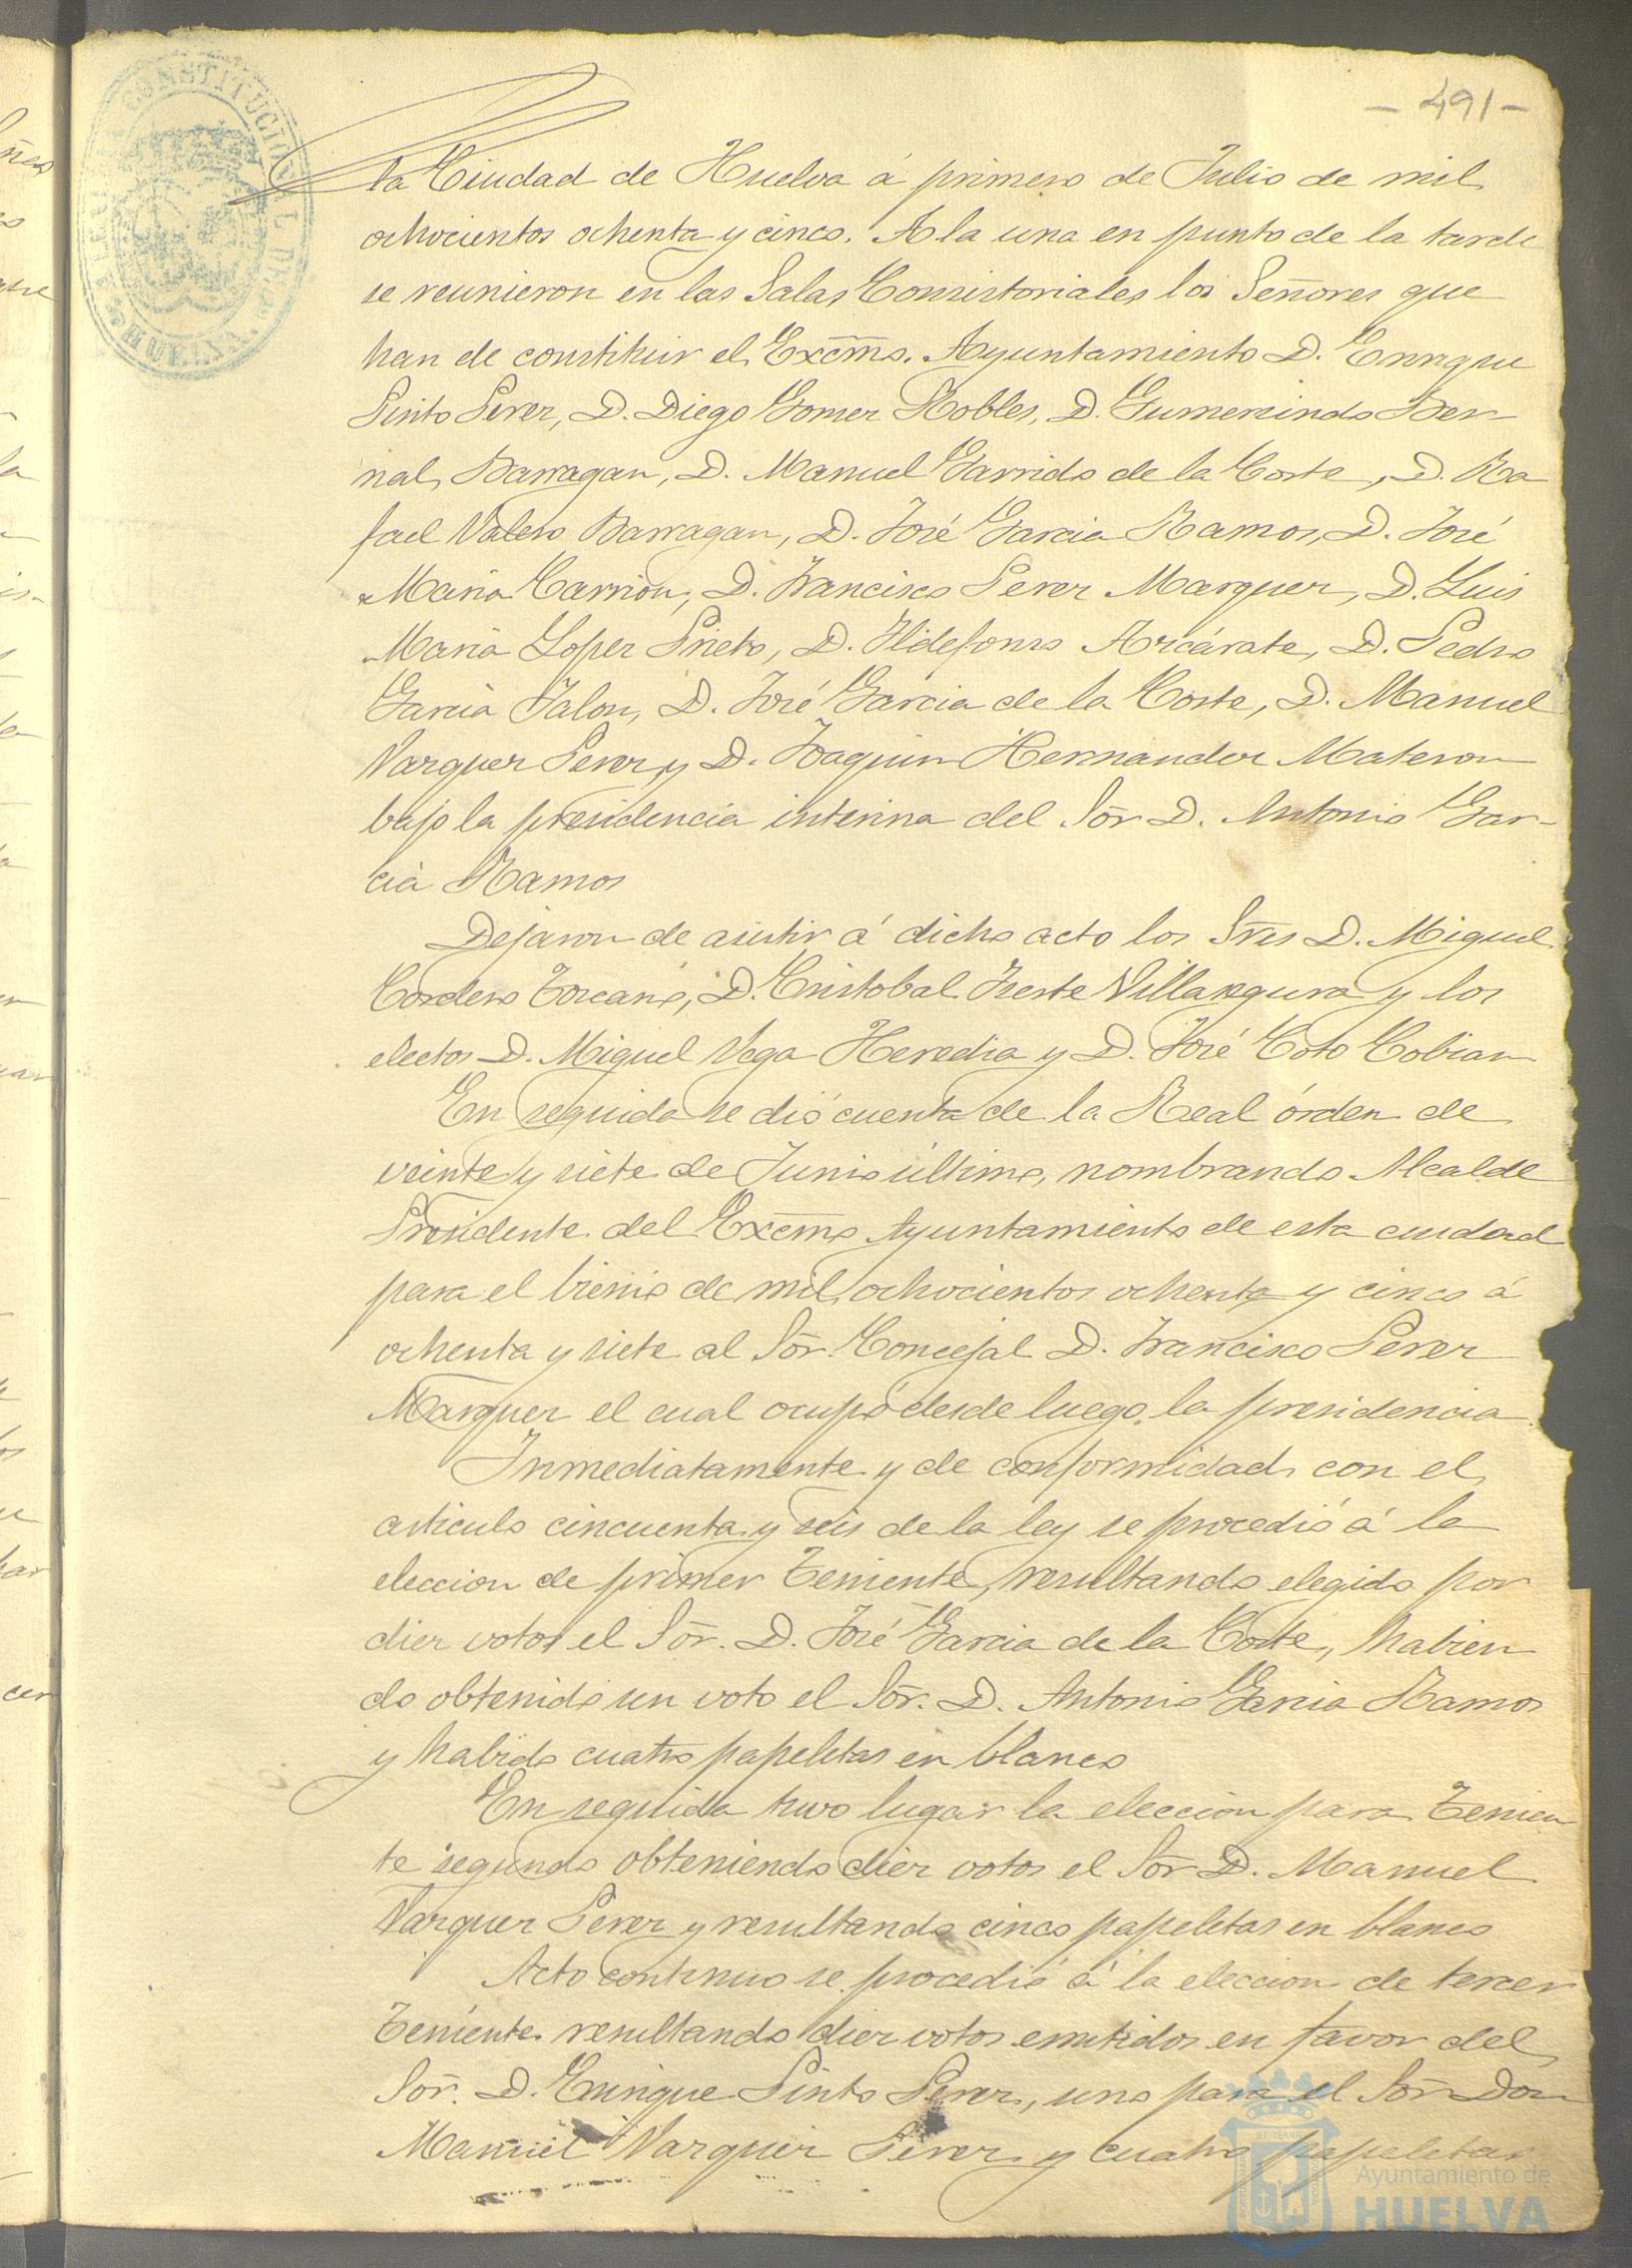 - 491 -
CONSTITUCIONAL DE
HUELVA
la Ciudad de Huelva á primero de Julio de mil
ochocientos ochenta y cinco. A la una en punto de la tarde
se reunieron en las Salas Consistoriales los Señores que
han de constituir el Excmo. Ayuntamiento D. Enrique
Pinto Perez, D. Diego Gomez Robles, D. Gumersindo Ber-
nal Barragan, D. Manuel Garrido de la Corte, D. Ra
fael Valero Barragan, D. José Garcia Ramos, D. José
Maria Carrion, D. Francisco Perez Marquez, D. Luis
Maria Lopez Prieto, D. Ildefonso Arcárate, D. Pedro
Garcia Jalon, D. José Garcia de la Corte, D. Manuel
Vazquez Perez y D. Joaquin Hernandez Materon
bajo la presidencia interina del Sôr D. Antonio Gar-
cia Ramos
Dejaron de asistir á dicho acto los Sres D. Miguel
Cordero Torcano, D. Cristobal Yeste Villasegura y los
electos D. Miguel Vega Heredia y D. José Coto Cobian
En seguida se dió cuenta de la Real órden de
veinte y siete de Junio último, nombrando Alcalde
Presidente del Excmo Ayuntamiento de esta ciudad
para el bienio de mil ochocientos ochenta y cinco á
ochenta y siete al Sôr. Concejal D. Francisco Perez
Marquez el cual ocupó desde luego la presidencia
Inmediatamente y de conformidad con el
articulo cincuenta y seis de la ley se procedió á la
eleccion de primer Teniente, resultando elegido por
diez votos el Sôr. D. José Garcia de la Corte, habien
do obtenido un voto el Sôr. D. Antonio Garcia Ramos
y habido cuatro papeletas en blanco
En seguida tuvo lugar la eleccion para Tenien
te segundo obteniendo diez votos el Sôr D. Manuel
Vazquez Perez y resultando cinco papeletas en blanco
Acto continuo se procedió á la eleccion de tercer
Teniente resultando diez votos emitidos en favor del
Sôr. D. Enrique Pinto Perez, uno para el Sôr Don
Manuel Vazquez Perez y cuatro papeletas
Ayuntamiento de
HUELVA